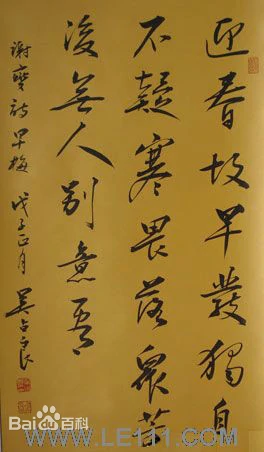 迎春故早發獨自
不疑寒畏落衆花
後無人別意看
謝燮詩早梅 戊子正月 吴占良
Bai du 百科
WWW.LE111.COM